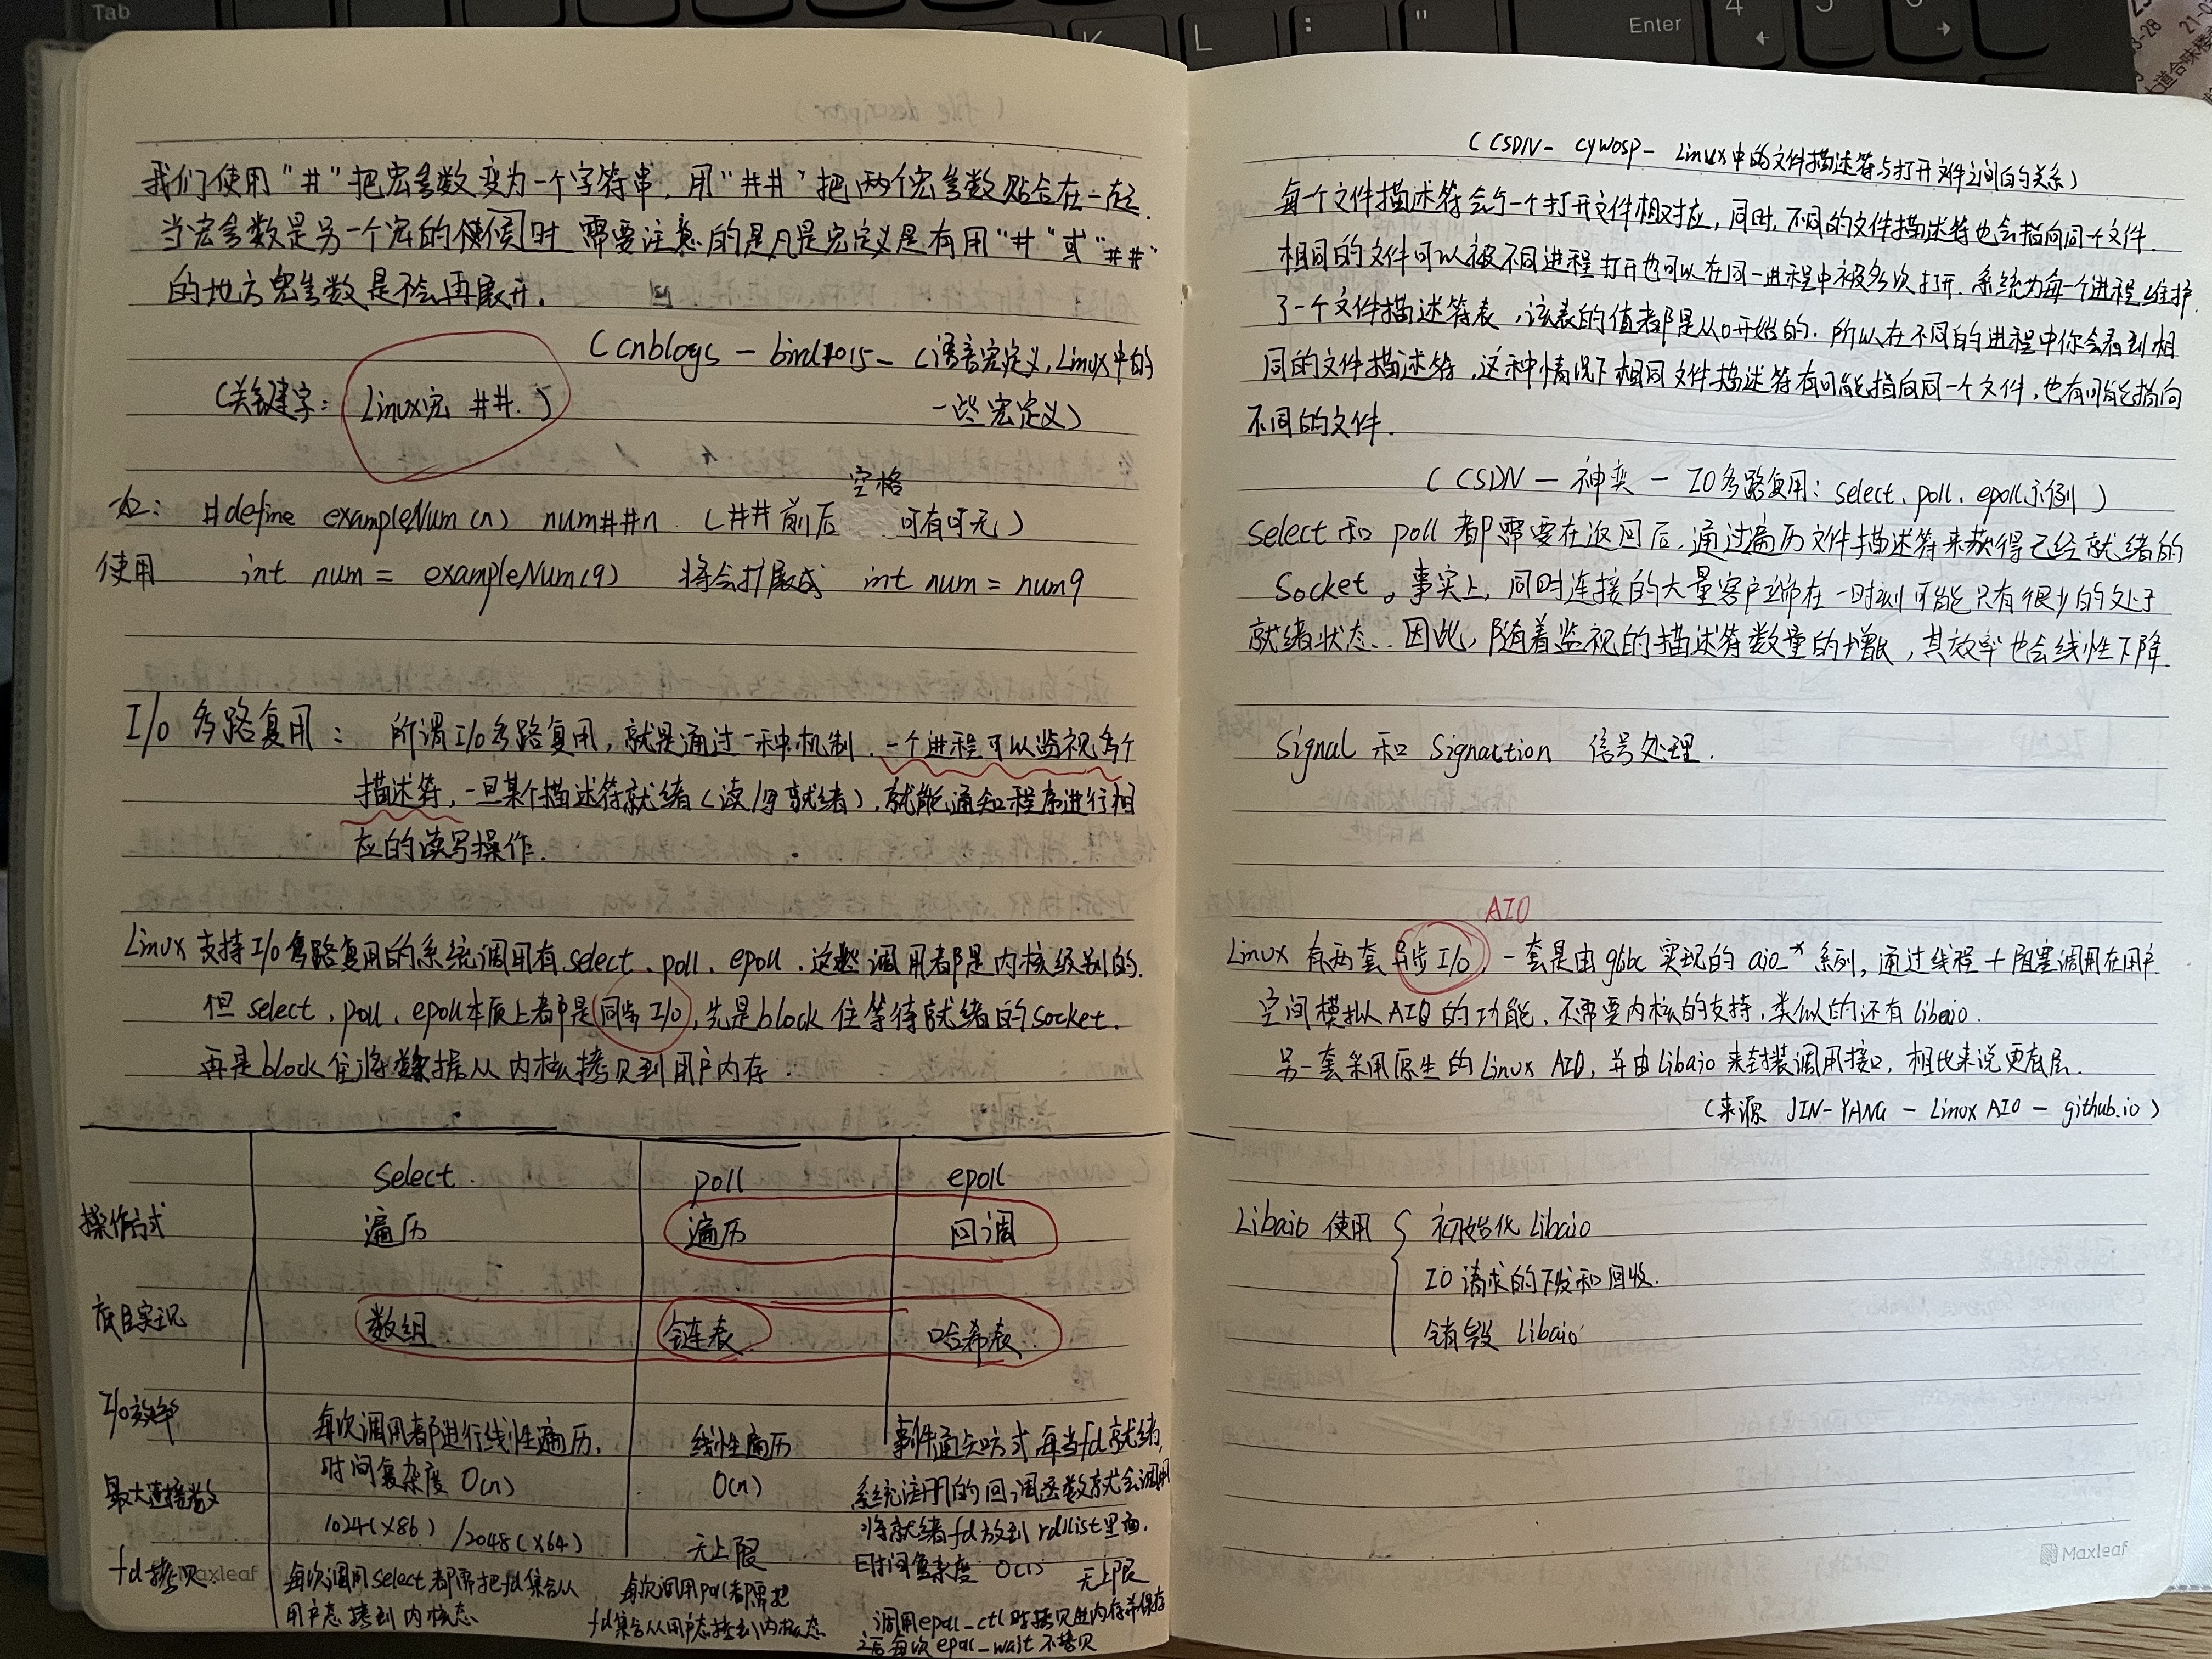 我们使用"#"把宏参数变为一个字符串,用"##"把两个宏参数贴合在一起.
当宏参数是另一个宏的候时 需要注意的是凡是宏定义是有用"#"或"##"
的地方宏参数是不会再展开.
(cnblogs - bird7015 - C语言宏定义,Linux中的
一些宏定义)
(关键字: Linux宏 ##.)
如: #define exampleNum(n) num##n (##前后空格可有可无)
使用 int num = exampleNum(9) 将会扩展成 int num = num9
I/O 多路复用: 所谓I/O多路复用,就是通过一种机制,一个进程可以监视多个
描述符,一旦某个描述符就绪(读/写就绪),就能通知程序进行相
应的读写操作.
Linux 支持I/O多路复用的系统调用有select、poll、epoll,这些调用者都是内核级别的.
但 select、poll、epoll本质上都是同步I/O,先是block住等待就绪的socket.
再是block住将数据从内核拷贝到用户内存.
select. poll epoll
操作方式 遍历 遍历 回调
底层实现 数组 链表 哈希表
I/O效率 每次调用都进行线性遍历, 线性遍历 事件通知方式,每当fd就绪,
时间复杂度 O(n) O(n) 系统注册的回调函数就会调用
将就绪fd放到rdllist里面,
时间复杂度 O(1)
最大连接数 1024(x86)/2048(x64) 无上限 无上限
fd拷贝 每次调用select都需把fd集合从 每次调用poll都需把 调用epoll_ctl时拷贝进内存并保存
用户态拷到内核态 fd集合从用户态拷到内核态 之后每次epoll_wait不拷贝
Maxleaf
(CSDN - cywosp - Linux中的文件描述符与打开文件之间的关系)
每个文件描述符会与一个打开文件相对应,同时,不同的文件描述符也会指向同一个文件.
相同的文件可以被不同进程打开也可以在同一进程中被多次打开.系统为每一个进程维护
了一个文件描述符表,该表的值都是从0开始的.所以在不同的进程中你会看到相
同的文件描述符,这种情况下相同文件描述符有可能指向同一个文件,也有可能指向
不同的文件.
(CSDN - 神奕 - IO多路复用: select、poll、epoll示例)
select 和 poll 都需要在返回后,通过遍历文件描述符来获得已经就绪的
socket。事实上,同时连接的大量客户端在一时刻可能只有很少的处于
就绪状态.因此,随着监视的描述符数量的增长,其效率也会线性下降.
Signal 和 Signaction 信号处理.
AIO
Linux 有两套异步I/O,一套是由glibc实现的 aio_* 系列,通过线程+阻塞调用在用户
空间模拟AIO的功能,不需要内核的支持,类似的还有libeio.
另一套采用原生的Linux AIO,并由Libaio来封装调用接口,相比来说更底层.
(来源 JIN-YANG - Linux AIO - github.io)
Libaio 使用 { 初始化 Libaio
IO 请求的下发和回收.
销毁 Libaio
Maxleaf
Tab
K
L
:
"
Enter
4
5
6